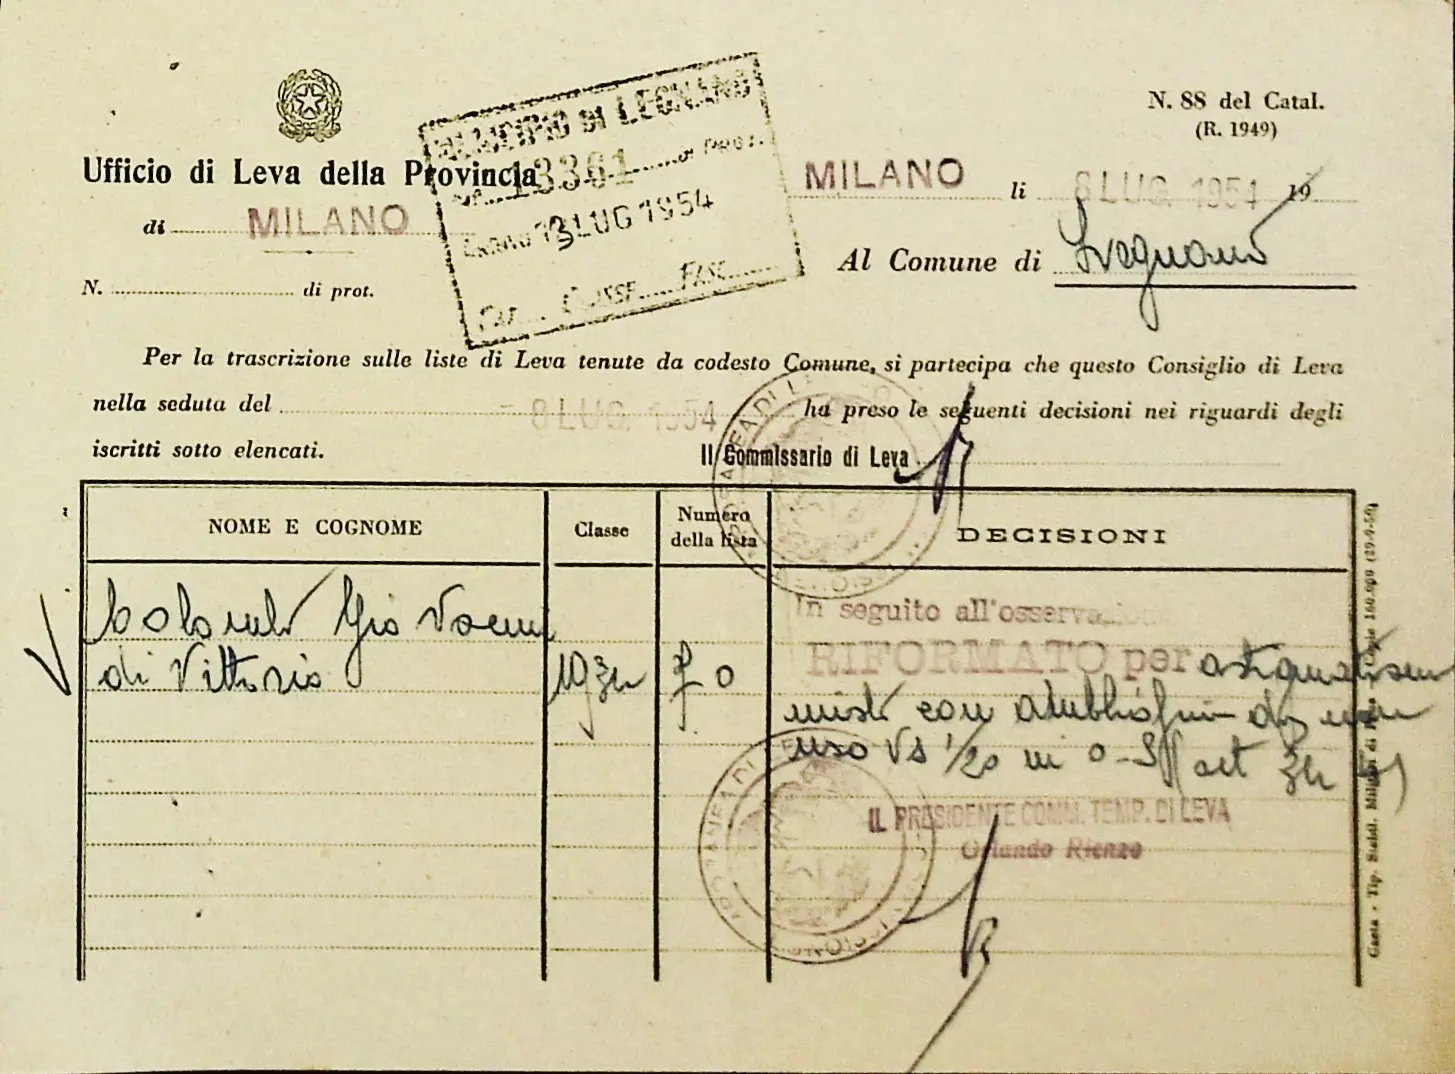 N. 88 del Catal.
(R. 1949)
Ufficio di Leva della Provincia
di MILANO
N. di prot.
MUNICIPIO DI LEGNANO
13361 di Prot.
13 LUG 1954
CAT. CLASSE FASC.
MILANO li 8 LUG. 1954 19
Al Comune di Legnano
Per la trascrizione sulle liste di Leva tenute da codesto Comune, si partecipa che questo Consiglio di Leva
nella seduta del - 8 LUG. 1954 ha preso le seguenti decisioni nei riguardi degli
iscritti sotto elencati.
Il Commissario di Leva
NOME E COGNOME
Classe
Numero
della lista
DECISIONI
Colombo Giovanni
di Vittorio
1934
70
In seguito all'osservazione
RIFORMATO per astigmatismo
misto con ambliopia da non
uso Vs 1/20 in o.S. art 34
IL PRESIDENTE COMM. TEMP. DI LEVA
Orlando Rienzo